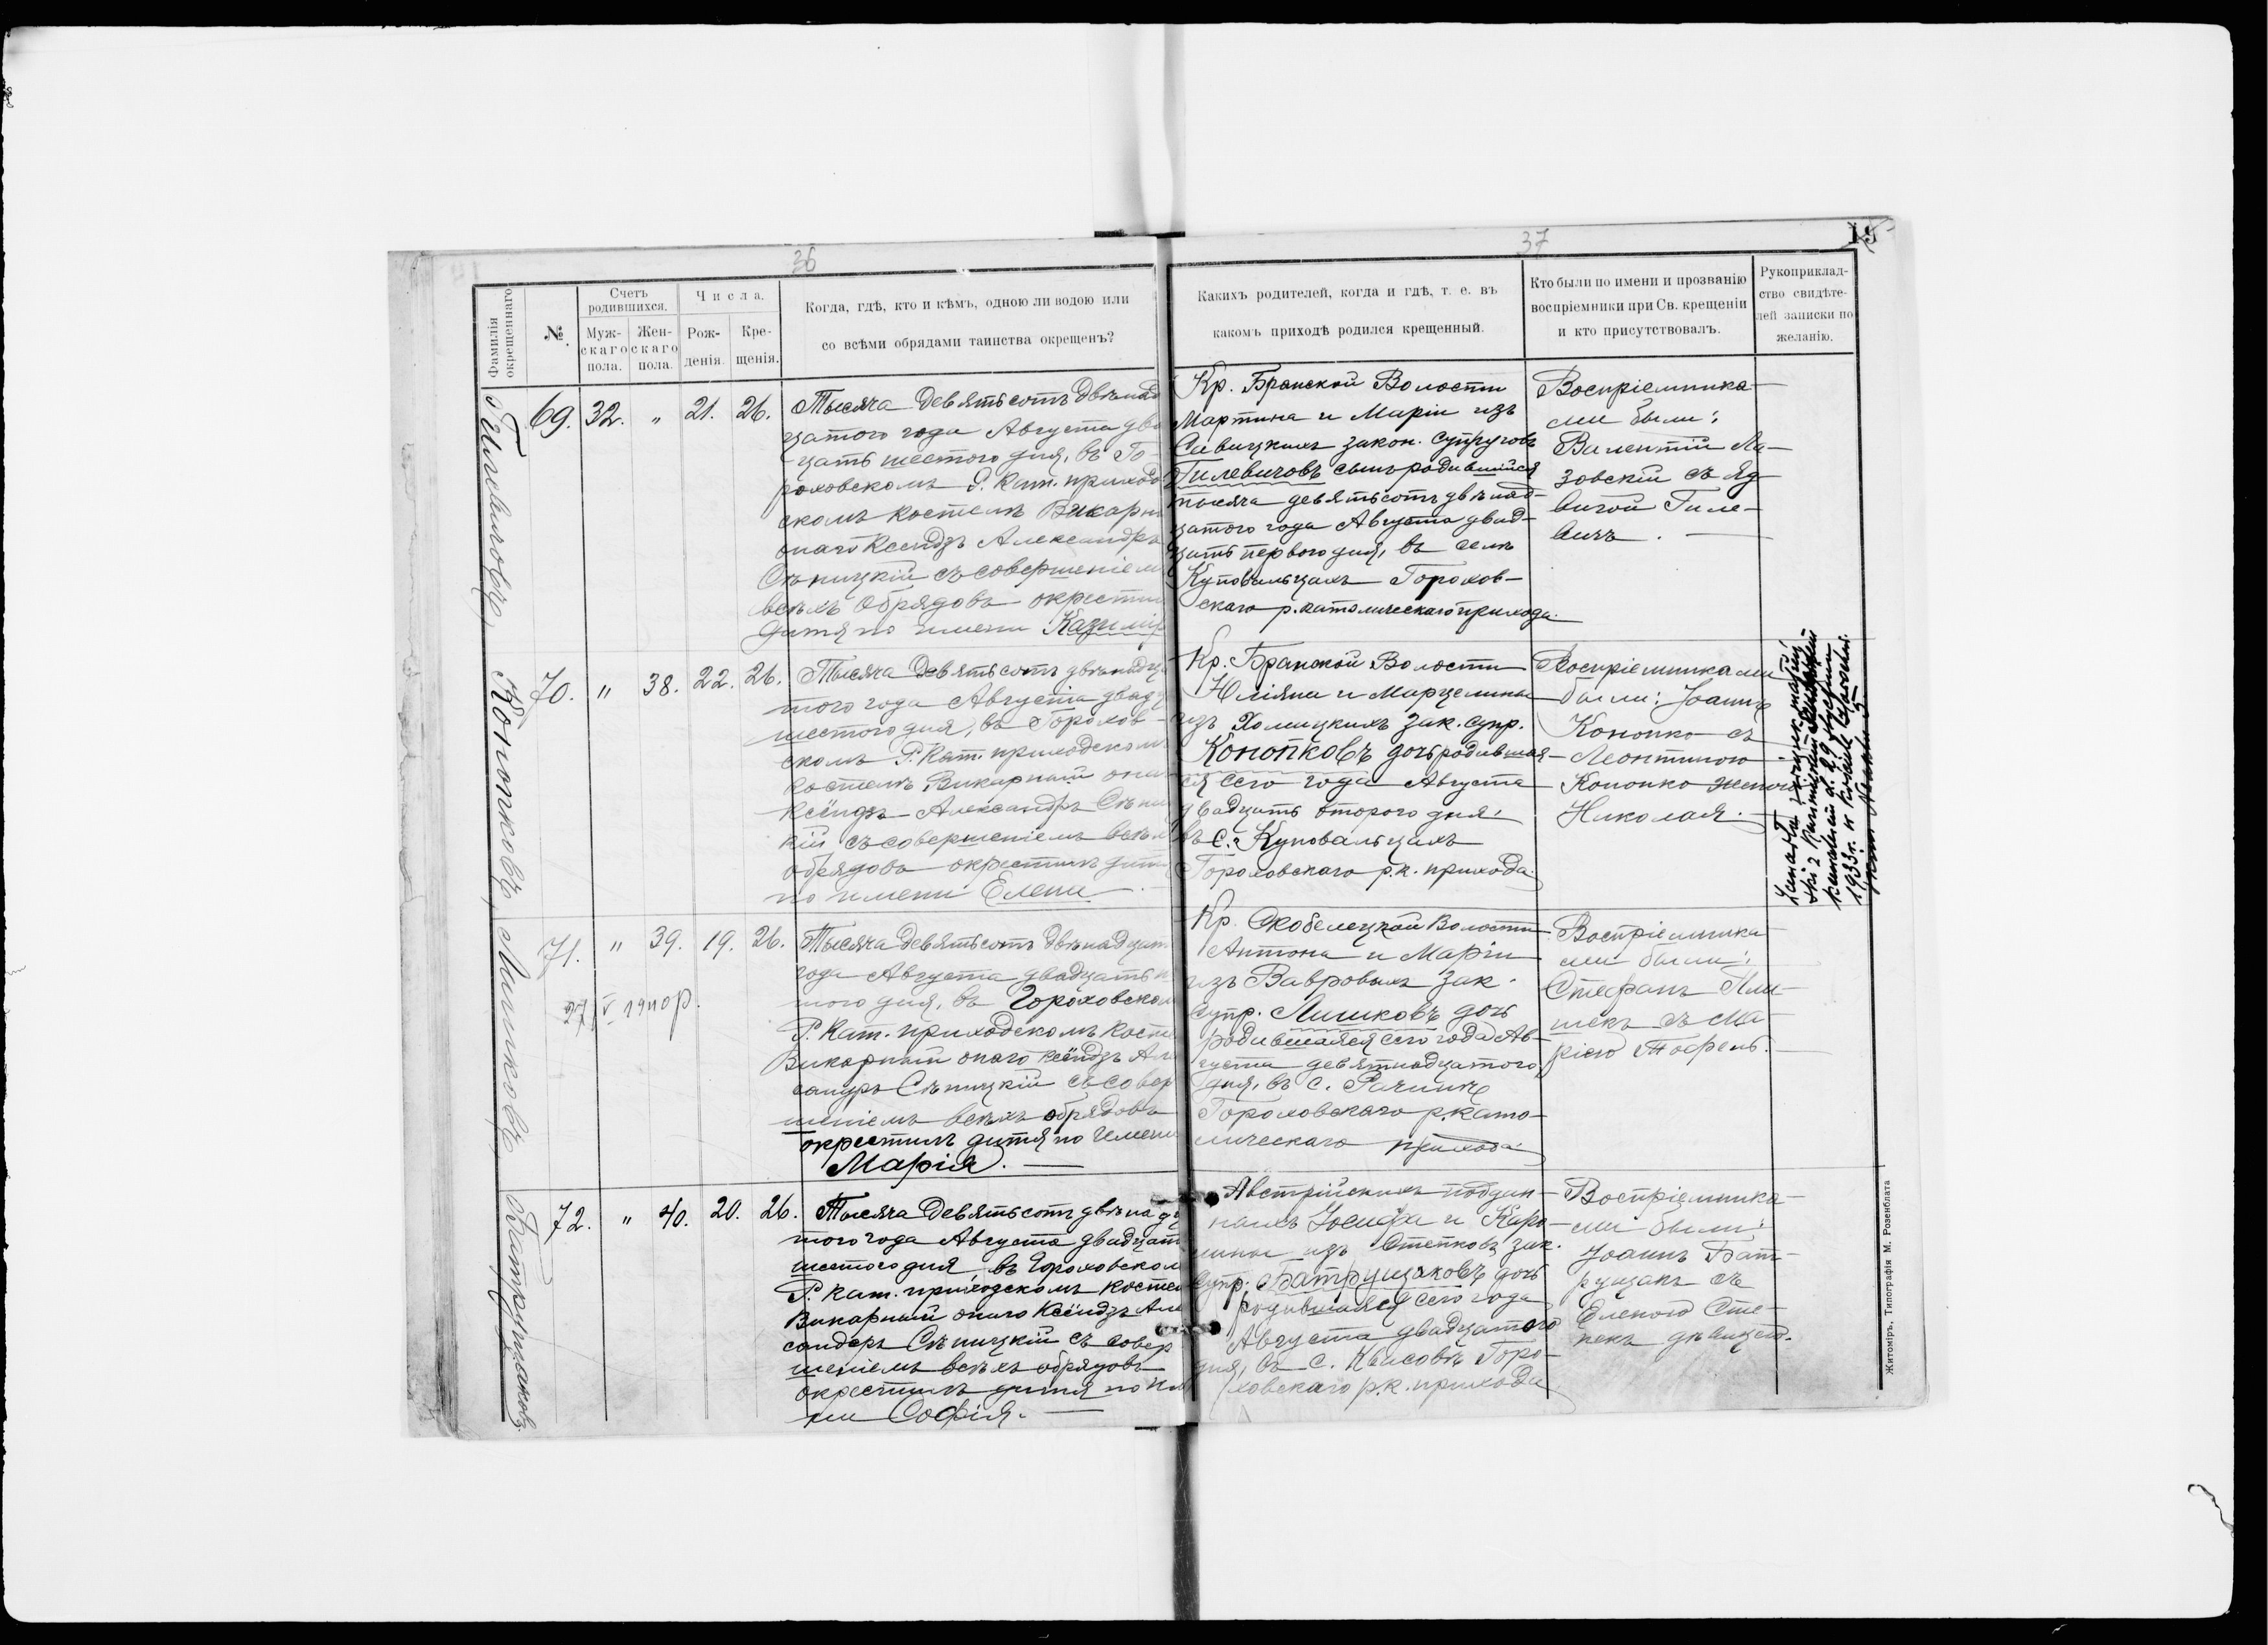 36
37
19
Фамилія окрещеннаго
№.
Счетъ родившихся.
Муж-скаго пола.
Жен-скаго пола.
Числа.
Рож-денія.
Кре-щенія.
Когда, гдѣ, кто и кѣмъ, одною ли водою или
со всѣми обрядами таинства окрещенъ?
Какихъ родителей, когда и гдѣ, т. е. въ
какомъ приходѣ родился крещенный.
Кто были по имени и прозванію
воспріемники при Св. крещеніи
и кто присутствовалъ.
Рукоприклад-
ство свидѣте-
лей записки по
желанію.
Гилевичовъ
69. 32. " 21. 26.
Тысяча Девятьсотъ Двѣнад
цатого года Августа два
цать шестого дня, въ Го-
роховскомъ Р. Кат. приход
скомъ костелѣ Викарн
онаго Ксендзъ Александръ
Сѣницкій съ совершеніем
всѣхъ обрядовъ окрестил
дитя по имени Казимір
Кр. Бранской Волости
Мартина и Маріи изъ
Савицкихъ закон. супруговъ
Гилевичовъ сынъ родившійся
тысяча девятьсотъ двѣнад-
цатого года Августа двад-
цать первого дня, въ селѣ
Куповальцахъ Горохов-
скаго р. католическаго прихода.
Воспріемника-
ми были:
Валентій Ла-
зовскій съ Яд
вигой Гиле-
вичъ.
Конопковъ
70. " 38. 22. 26.
Тысяча Девятьсотъ двѣнадца
того года Августа двадц
шестого дня, въ Горохов-
скомъ Р. Кат. приходском
костелѣ Викарный она
Ксёндзъ Александръ Сѣни
кій съ совершеніемъ всѣх
обрядовъ окрестилъ дит
по имени Елена.
Кр. Бранской Волости
Юліяна и Марцелины
изъ Хомицкихъ зак. супр.
Конопковъ дочь родившая-
ся сего года Августа
двадцать второго дня
въ с. Куповальцахъ
Гороховскаго р.к. прихода.
Воспріемниками
были: Іоаннъ
Конопко съ
Леонтиною
Конопко женою
Николая.
1933r. w
Лишковъ
71. " 39. 19. 26.
27 V 1940 р.
Тысяча Девятьсотъ Двѣнадцат
года Августа двадцать ш
того дня, въ Гороховском
Р. Кат. приходскомъ косте
Викарный онаго Ксёндзъ Але
сандръ Сѣницкій съ совер
шеніемъ всѣхъ обрядовъ
окрестилъ дитя по имени
Марія.
Кр. Скобелецкой Волости
Антона и Маріи
изъ Вавровыхъ зак.
супр. Лишковъ дочь
родившаяся сего года Ав-
густа девятнадцатого
дня, въ с. Рачинѣ
Гороховскаго р. като-
лическаго прихода.
Воспріемника-
ми были:
Стефанъ
съ Ма-
ріею
Батрущаковъ
72. " 40. 20. 26.
Тысяча Девятьсотъ двѣнадц
того года Августа двадцат
шестого дня, въ Гороховском
Р. Кат. приходскомъ косте
Викарный онаго Ксёндзъ Але
сандръ Сѣницкій съ совер
шеніемъ всѣхъ обрядовъ
окрестилъ дитя по им
ни Софія.
Австрійскихъ поддан-
ныхъ Іосифа и Каро-
лины изъ Степковъ зак.
супр. Батрущаковъ дочь
родившаяся сего года
Августа двадцатого
дня, въ с. Квасовѣ Горо-
ховскаго р.к. прихода
Воспріемника-
ми были:
Іоаннъ Бат-
рущакъ съ
Еленою Сте-
пекъ дѣвицей.
Житоміръ, Типографія М. Розенблата